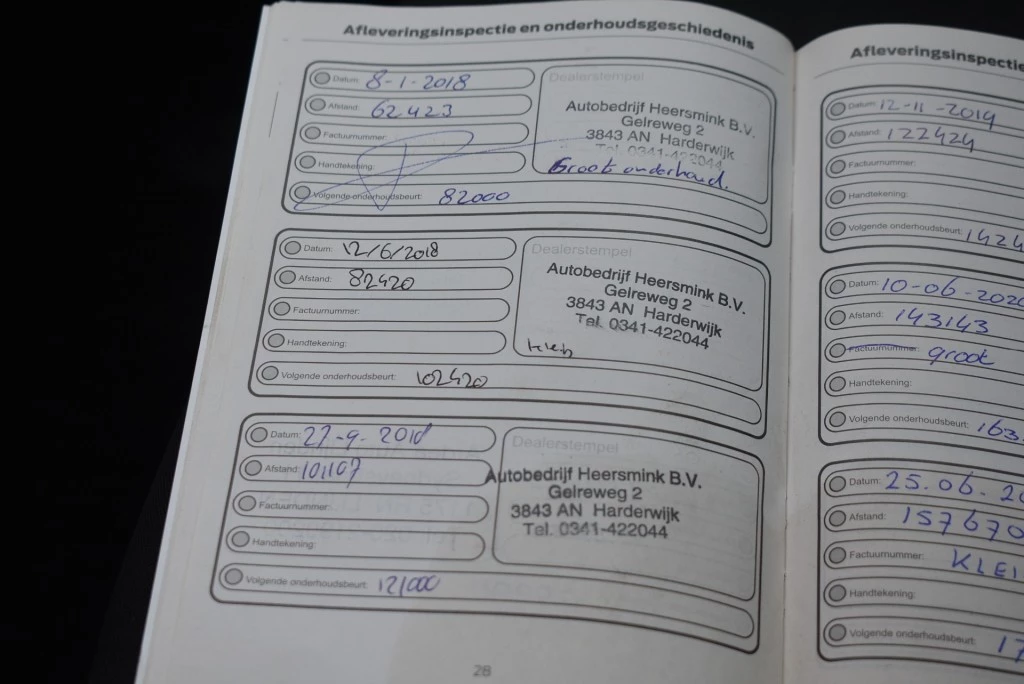 Afleveringsinspectie en onderhoudsgeschiedenis
Datum: 8-1-2018
Afstand: 62423
Factuurnummer:
Handtekening:
Volgende onderhoudsbeurt: 82000
Dealerstempel
Autobedrijf Heersmink B.V.
Gelreweg 2
3843 AN Harderwijk
Tel. 0341-422044
Groot onderhoud.
Datum: 12/6/2018
Afstand: 82420
Factuurnummer:
Handtekening:
Volgende onderhoudsbeurt: 102420
Dealerstempel
Autobedrijf Heersmink B.V.
Gelreweg 2
3843 AN Harderwijk
Tel. 0341-422044
Datum: 27-9-2018
Afstand: 101107
Factuurnummer:
Handtekening:
Volgende onderhoudsbeurt: 121000
Dealerstempel
Autobedrijf Heersmink B.V.
Gelreweg 2
3843 AN Harderwijk
Tel. 0341-422044
28
Afleveringsinspectie
Datum: 12-11-2019
Afstand: 122424
Factuurnummer:
Handtekening:
Volgende onderhoudsbeurt: 1424
Datum: 10-06-2020
Afstand: 143143
Factuurnummer: groot
Handtekening:
Volgende onderhoudsbeurt: 163
Datum: 25.06.20
Afstand: 157670
Factuurnummer: KLEI
Handtekening:
Volgende onderhoudsbeurt: 17